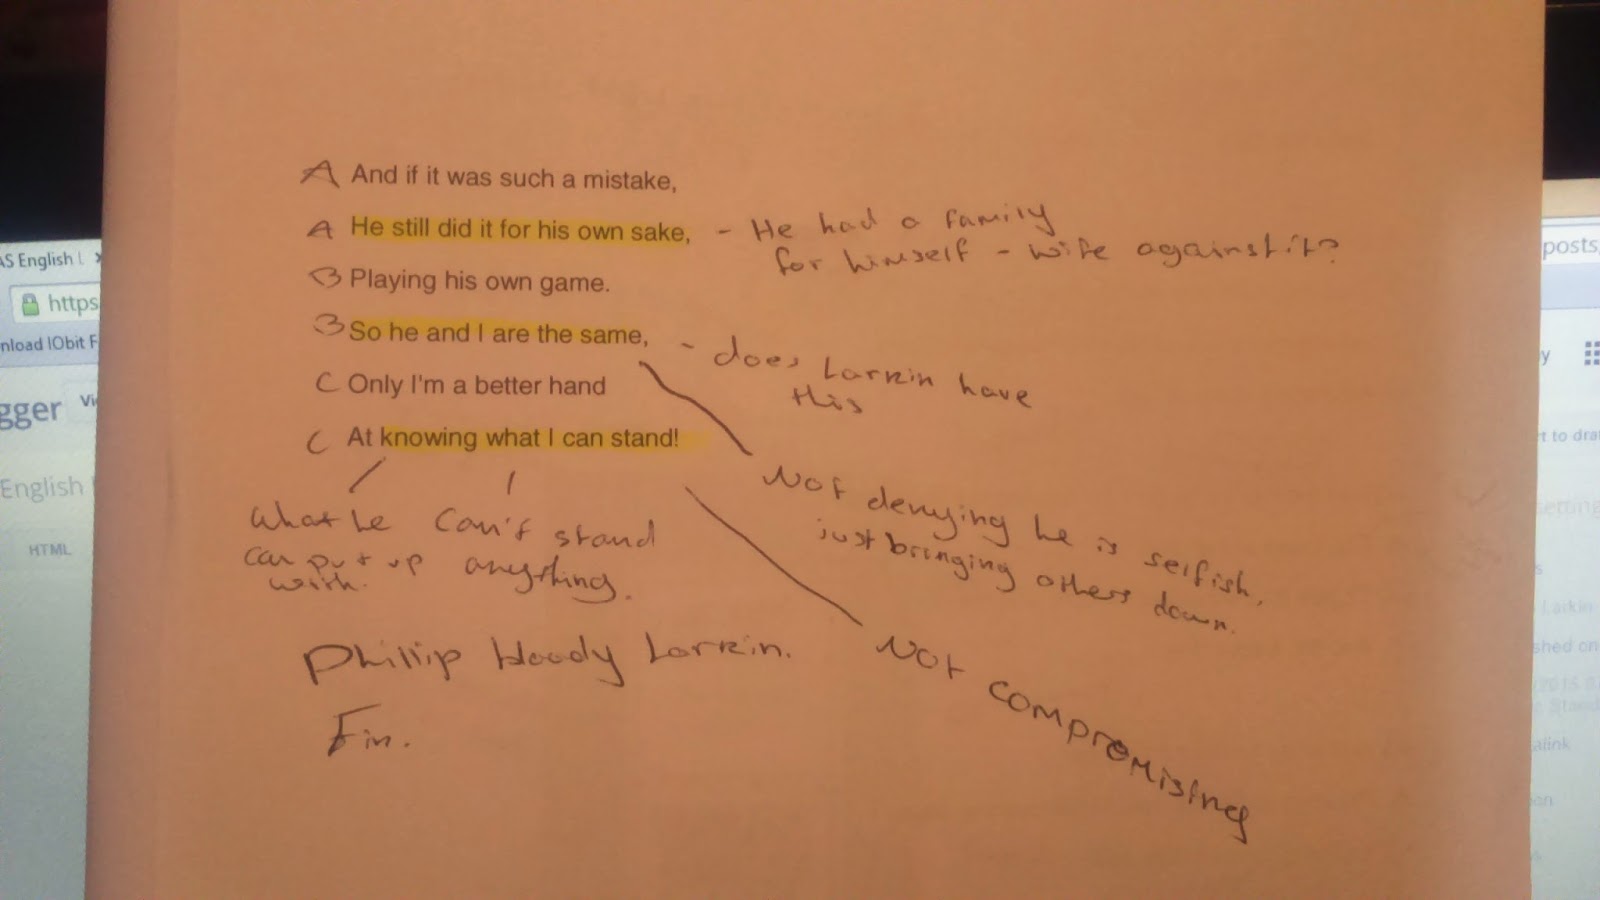 A And if it was such a mistake,
A He still did it for his own sake, - He had a family
for himself - wife against it?
B Playing his own game.
B So he and I are the same, - does Larkin have
this
C Only I'm a better hand
C At knowing what I can stand!
Not denying he is selfish,
just bringing others down.
What he
can put up
with.
Can't stand
anything.
Not compromising
Phillip bloody Larkin.
Fin.
AS English L
https
nload IObit F
gger Vi
English
HTML
posts
t to dra
setting
Larkin
shed on
Stand
alink